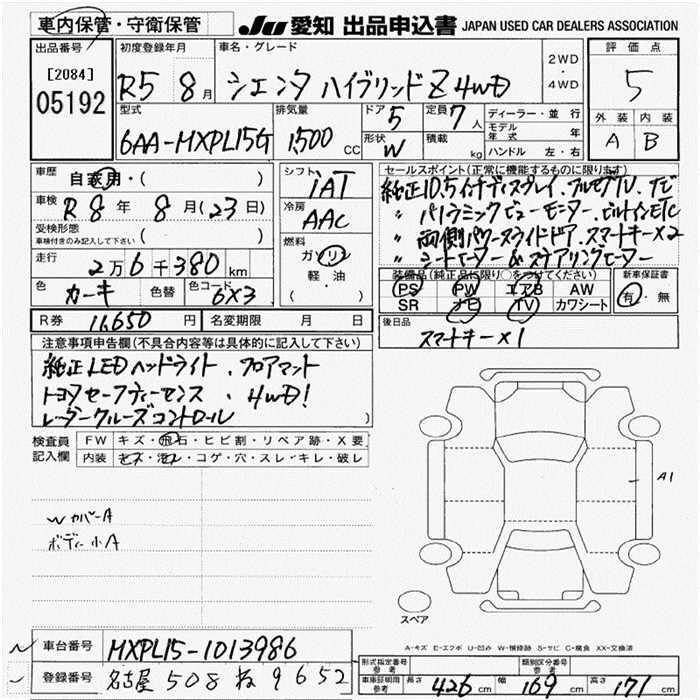 車内保管・守衛保管
JU 愛知 出品申込書 JAPAN USED CAR DEALERS ASSOCIATION
出品番号
[2084]
05192
初度登録年月
R5 8月
車名・グレード
シエンタ ハイブリッドZ 4WD
2WD
・
4WD
評価点
5
外装 内装
A B
型式
6AA-MXPL15G
排気量
1,500 CC
ドア
5
定員
7人
形状
W
積載
kg
ディーラー・並行
モデル年式 年
ハンドル 左・右
車歴
自家用・( )
車検
R8年 8月(23日)
受検形態
車検付きのみ記入して下さい ( )
走行
2万6千380km
色
カーキ
色替
色コード
6X3
シフト
iAT
冷房
AAC
燃料
ガソリン
軽・油
( )
セールスポイント(正常に機能するものに限ります)
純正10.5インチディスプレイ.フルセグTV.ナビ
〃 パノラミックビューモニター.ビルトインETC
〃 両側パワースライドドア.スマートキーX2
〃 シートヒーター&ステアリングヒーター
装備品(純正品に限り○をつけてください)
PS PW エアB AW
SR ナビ TV カワシート
新車保証書
有・無
R券 11,650円
名変期限 月 日
後日品
スマートキーX1
注意事項申告欄(不具合内容等は具体的に記入して下さい)
純正LEDヘッドライト.フロアマット
トヨタセーフティーセンス.4WD!
レーダークルーズコントロール
検査員記入欄
FW キズ・飛石・ヒビ割・リペア跡・X要
内装 キズ・汚れ・コゲ・穴・スレ・キレ・破レ
W カバーA
ボディー小A
A1
スペア
A-キズ E-エクボ U-凹み W-補修跡 S-サビ C-腐食 XX-交換済
車台番号 MXPL15-1013986
登録番号 名古屋 508 ね 9652
形式指定番号 参考
類別区分番号 参考
車庫証明用 参考
長さ 426cm 幅 169cm 高さ 171cm